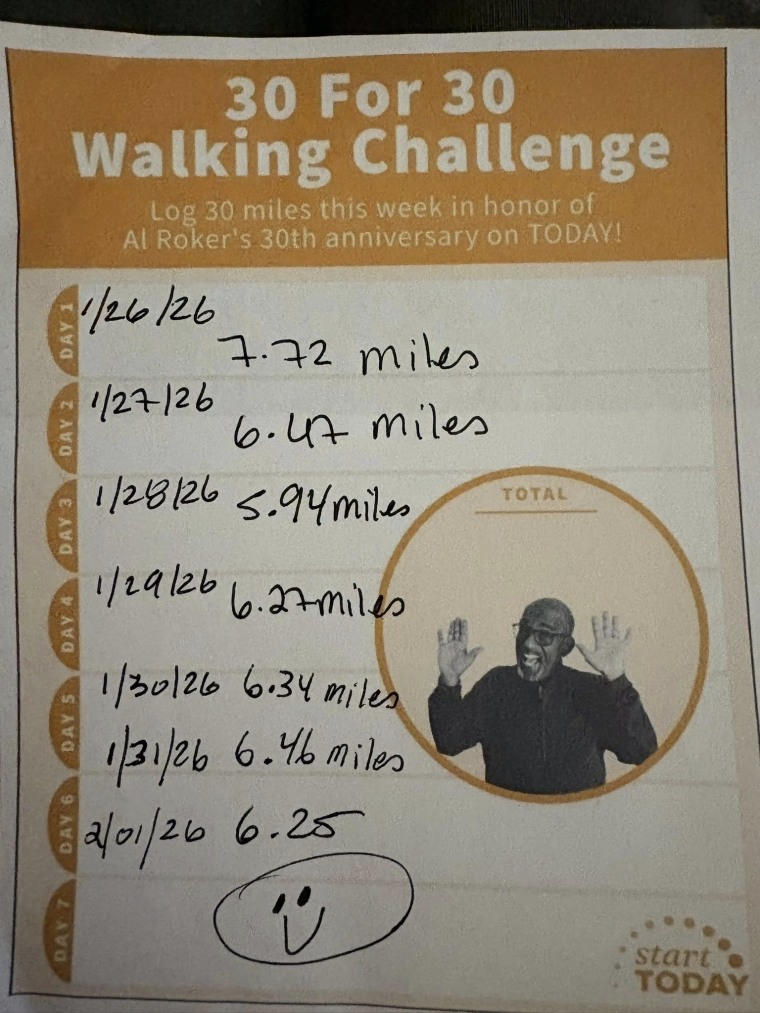 30 For 30
Walking Challenge
Log 30 miles this week in honor of
Al Roker's 30th anniversary on TODAY!
DAY 1
1/26/26
7.72 miles
DAY 2
1/27/26
6.47 miles
DAY 3
1/28/26 5.94 miles
TOTAL
DAY 4
1/29/26 6.27 miles
DAY 5
1/30/26 6.34 miles
1/31/26 6.46 miles
DAY 6
2/01/26 6.25
DAY 7
start
TODAY